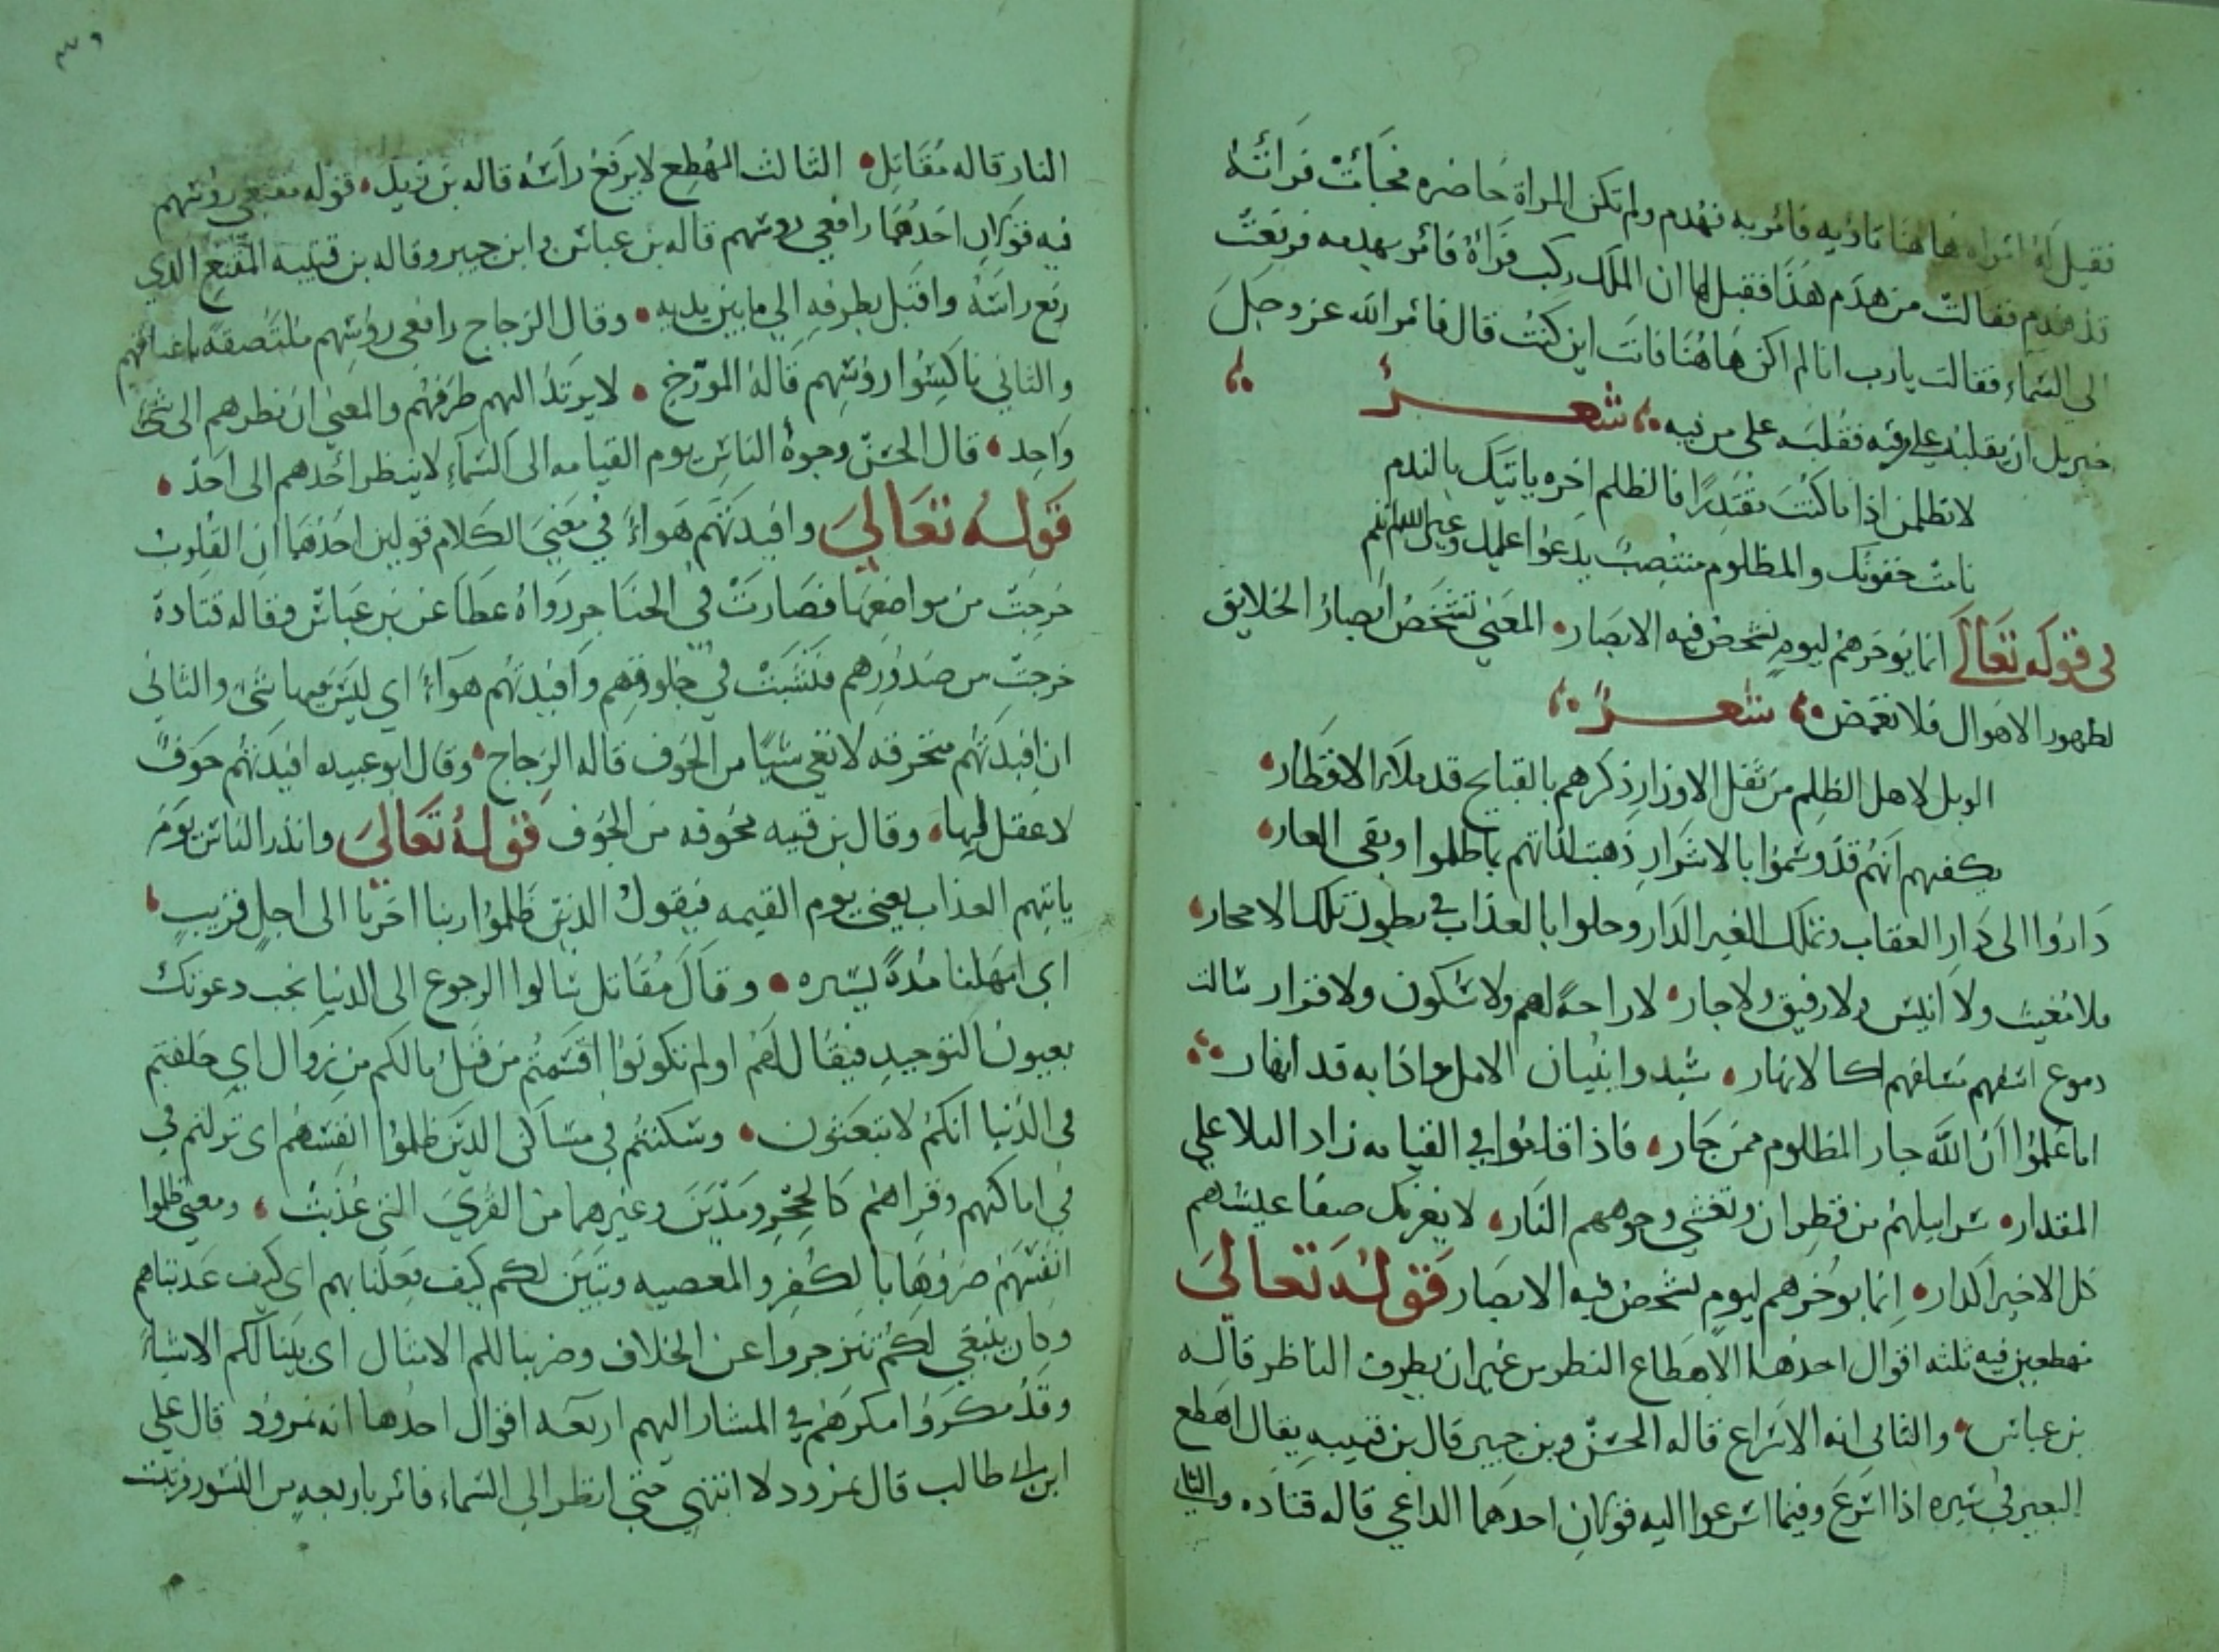 فقيل له امراه هاهنا تاويه فامر به فهدم ولم تكن المراة حاضره فجاءت فراته
قد هدم فقالت من هدم هذا فقيل لها ان الملك ركب فرآه فامر بهدمه فرفعت
الي السماء فقالت يارب انا لم اكن هاهنا فانت اين كنت قال فامر الله عز وجل
جبريل ان يقلبه علي من فيه فقلبه على من فيه شعر
لا تظلمن اذا ما كنت مقتدرا فالظلم اخره ياتيك بالندم
نامت جفونك والمظلوم منتصب يدعوا عليك وعين الله لم تنم
في قوله تعالى انما يوخرهم ليوم تشخص فيه الابصار المعني تشخص ابصار الخلايق
لظهور الاهوال فلا تغمض شعر
الويل لاهل الظلم من ثقل الاوزار ذكرهم بالقبايح قد ملأ الاقطار
يكفيهم انهم قد وسموا بالاشرار ذهبت لذاتهم بما ظلموا وبقي العار
داروا الى دار العقاب وتملك الغير الدار وخلوا بالعذاب في بطون تلك الاحجار
فلا مغيث ولا انيس ولا رفيق ولا جار لا راحة لهم ولا سكون ولا قرار سالت
دموع اسفهم كالانهار شيدوا بنيان الامل واذا به قد انهار
اما علموا ان الله جار المظلوم ممن جار فاذا قاموا في القيامه زاد البلا علي
المقدار سرابيلهم من قطران وتغشي وجوههم النار لا يغرنك صفا عيشهم
كل الاخير اكدار انما يوخرهم ليوم تشخص فيه الابصار قوله تعالى
مهطعين فيه ثلثه اقوال احدها الاهطاع النظر من غير ان يطرف الناظر قاله
بن عباس والثاني انه الاسراع قاله الحسن وبن جبير قال بن قتيبه يقال اهطع
البعير في سيره اذا اسرع وفيما اسرعوا اليه قولان احدهما الداعي قاله قتاده والثاني
النار قاله مقاتل الثالث المهطع لا يرفع راسه قاله بن زيد قوله مقنعي روسهم
فيه قولان احدهما رافعي روسهم قاله بن عباس وابن جبير وقاله بن قتيبه المقنع الذي
رفع راسه واقبل بطرفه الي ما بين يديه وقال الزجاج رافعي روسهم ملتصقة باعناقهم
والثاني ناكسوا روسهم قاله المورخ لا يرتد اليهم طرفهم والمعني ان نظرهم الى شي
واحد قال الحسن وجوه الناس يوم القيامه الى السماء لا ينظر احدهم الى احد
قوله تعالي وافيدتهم هواء في معني الكلام قولين احدهما ان القلوب
خرجت من مواضعها فصارت في الحناجر رواه عطا عن بن عباس وقاله قتادة
خرجت من صدورهم فنشبت في حلوقهم وافيدتهم هوآء اي ليس فيها شي والثاني
ان افيدتهم منخرقه لا تعي شيا من الخوف قاله الزجاج وقال ابو عبيده افيدتهم جوف
لا عقل فيها وقال بن قتيبه مجوفه من الخوف قوله تعالي وانذر الناس يوم
ياتيهم العذاب يعني يوم القيمه فيقول الذين ظلموا ربنا اخرنا الى اجل قريب
اي امهلنا مدة يسيره وقال مقاتل سالوا الرجوع الى الدنيا نجب دعوتك
يعنون التوحيد فيقال لهم اولم تكونوا اقسمتم من قبل مالكم من زوال اي حلفتم
في الدنيا انكم لا تبعثون وسكنتم في مساكن الذين ظلموا انفسهم اي نزلتم في
في اماكنهم وقراهم كالحجر ومدين وغيرهما من القري التي عذبت ومعني ظلموا
انفسهم ضروها بالكفر والمعصيه وتبين لكم كيف فعلنا بهم اي كيف عذبناهم
وكان ينبغي لكم تنزجروا عن الخلاف وضربنا لكم الامثال اي بينا لكم الاشباه
وقد مكروا مكرهم في المشار اليهم اربعه اقوال احدها انه نمرود قال علي
ابن ابي طالب قال نمرود لا انتهي حتي انظر الي السماء فامر باربعه من النسور فربيت